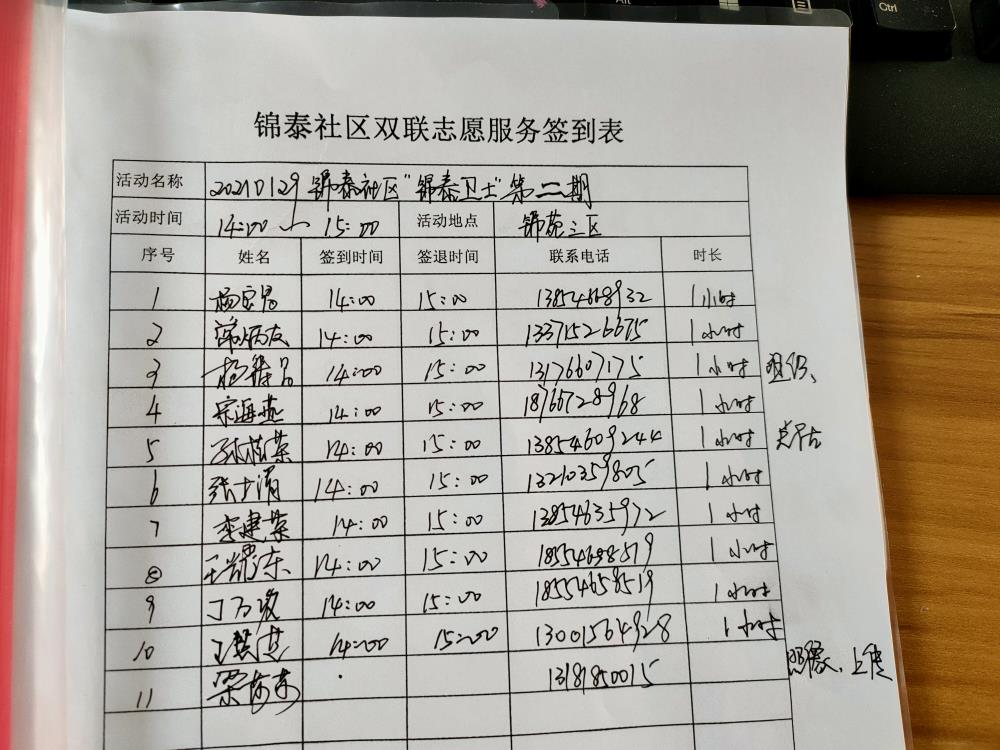 Alt
Ctrl
锦泰社区双联志愿服务签到表
活动名称 20210129 锦泰社区"锦泰卫士"第二期
活动时间 14:00 ~ 15:00 活动地点 锦苑三区
序号 姓名 签到时间 签退时间 联系电话 时长
1 14:00 15:00 13854668932 1小时
2 14:00 15:00 13371526675 1小时
3 14:00 15:00 13176607175 1小时 组织、
4 宋海燕 14:00 15:00 18766728968 1小时
5 孙桂荣 14:00 15:00 13854609244 1小时
6 14:00 15:00 13210359805 1小时
7 李建荣 14:00 15:00 13854635972 1小时
8 王耀东 14:00 15:00 1小时
9 14:00 15:00 18554658519 1小时
10 14:00 15:00 13001564928 1小时
11 13181850015